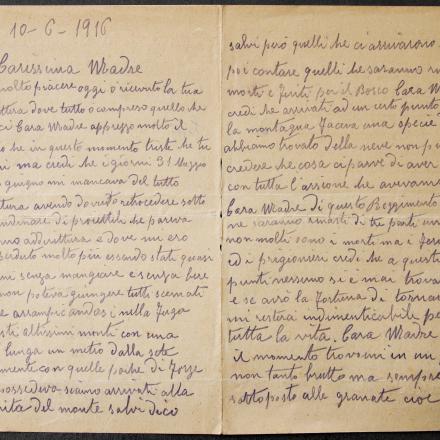 10-6-1916
Carissima Madre
molto piacere oggi o ricevuto la tua
ttera dove tutto ò compreso quello che
ci Cara Madre apprezzo molto il
o che in questo momento triste che tu
mi ma credi che i giorni 31 Maggio
giugno mi mancava del tutto
ttura avendo dovuto retrocedere sotto
andinare di proiettili che pariva
adirittura e dove mi ero
molto più essendo stati quasi
ni senza mangiare e senza bere
non poteva giungere tutti scemati
e arrampicandosi nella fuga
sti altissimi monti con una
lunga un metro dalla sete
mente con quelle poche di forze
possediva siamo arrivati alla
mita del monte salvi dico
salvi però quelli che ci arrivarono
poi contare quelli che saranno
morti e feriti per il Bosco Cara M
credi che arrivati ad un certo punto
la montagna faceva una specie
abbiamo trovato della neve non pu
credere che cosa ci parve di aver
con tutta l'arsione che avevam
Cara Madre di questo Reggimento
ne saranno rimasti di tre parti un
non molti sono i morti ma i feri
ed i prigionieri credi che a questi
punti nessuno si è mai trova
e se avrò la fortuna di tornar
mi resterà indimenticabili pe
tutta la vita. Cara Madre
il momento trovomi in un
non tanto brutto ma sempre
sottoposto alle granate cioè